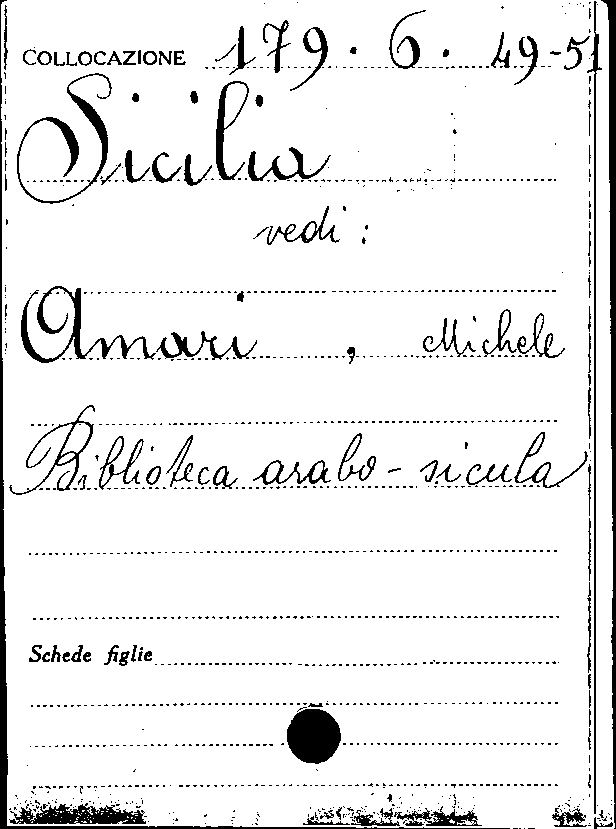 COLLOCAZIONE 179.6.49-51
Sicilia
vedi:
Amari, Michele
Biblioteca arabo-sicula
Schede figlie